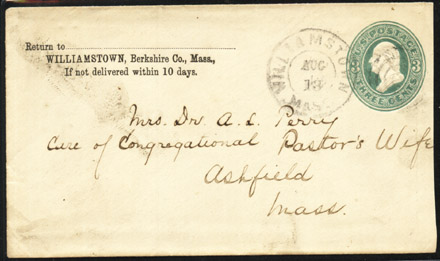 Return to
WILLIAMSTOWN, Berkshire Co., Mass.,
If not delivered within 10 days.
WILLIAMSTOWN
AUG
13
MASS.
U.S. POSTAGE
THREE CENTS
Mrs. Dr. A. L. Perry
Care of Congregational Pastor's Wife
Ashfield
Mass.